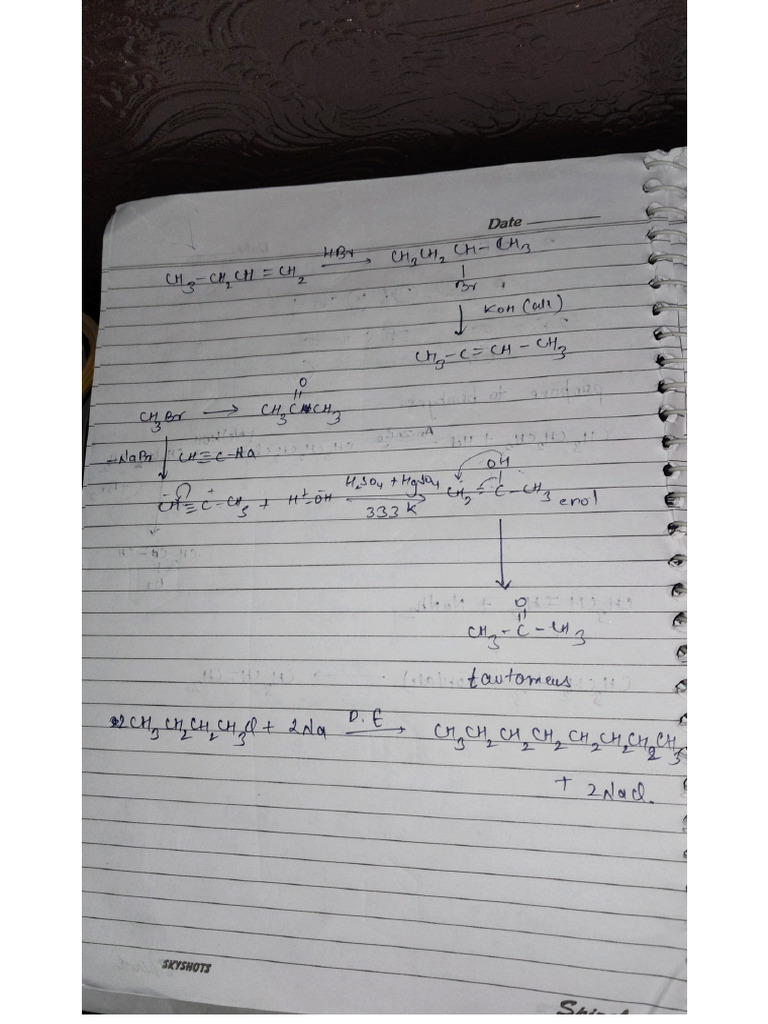 Date
CH3-CH2CH=CH2 HBr → CH3CH2CH-CH3
Br
↓ KOH (alc)
CH3-C=CH-CH3
O
CH3Br → CH3CCH3
-NaBr ↓ CH≡C-Na
OH
CH≡C-CH3 + H-OH H2SO4 + HgSO4 CH2=C-CH3 enol
333 K
↓
O
CH3-C-CH3
tautomers
2CH3CH2CH2CH3Cl + 2Na D.E → CH3CH2CH2CH2CH2CH2CH2CH3
+ 2NaCl.
SKYSHOTS